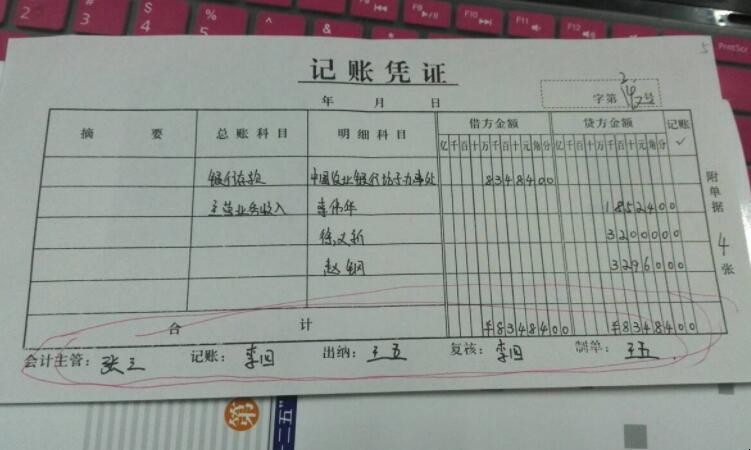 2 3 S 4 % 5 F9 F10 F11 F12 PrintScr
5
记账凭证
年 月 日
字第 号
摘要 总账科目 明细科目 借方金额 贷方金额 记账
亿千百十万千百十元角分 亿千百十万千百十元角分 ✓
银行存款 中国农业银行 办事处 8348400
主营业务收入 李伟年 1852400
徐文新 3200000
赵钢 3296000
合计 ¥8348400 ¥8348400
附单据 4 张
会计主管: 张三 记账: 李四 出纳: 王五 复核: 李四 制单: 王五
第
十二五"